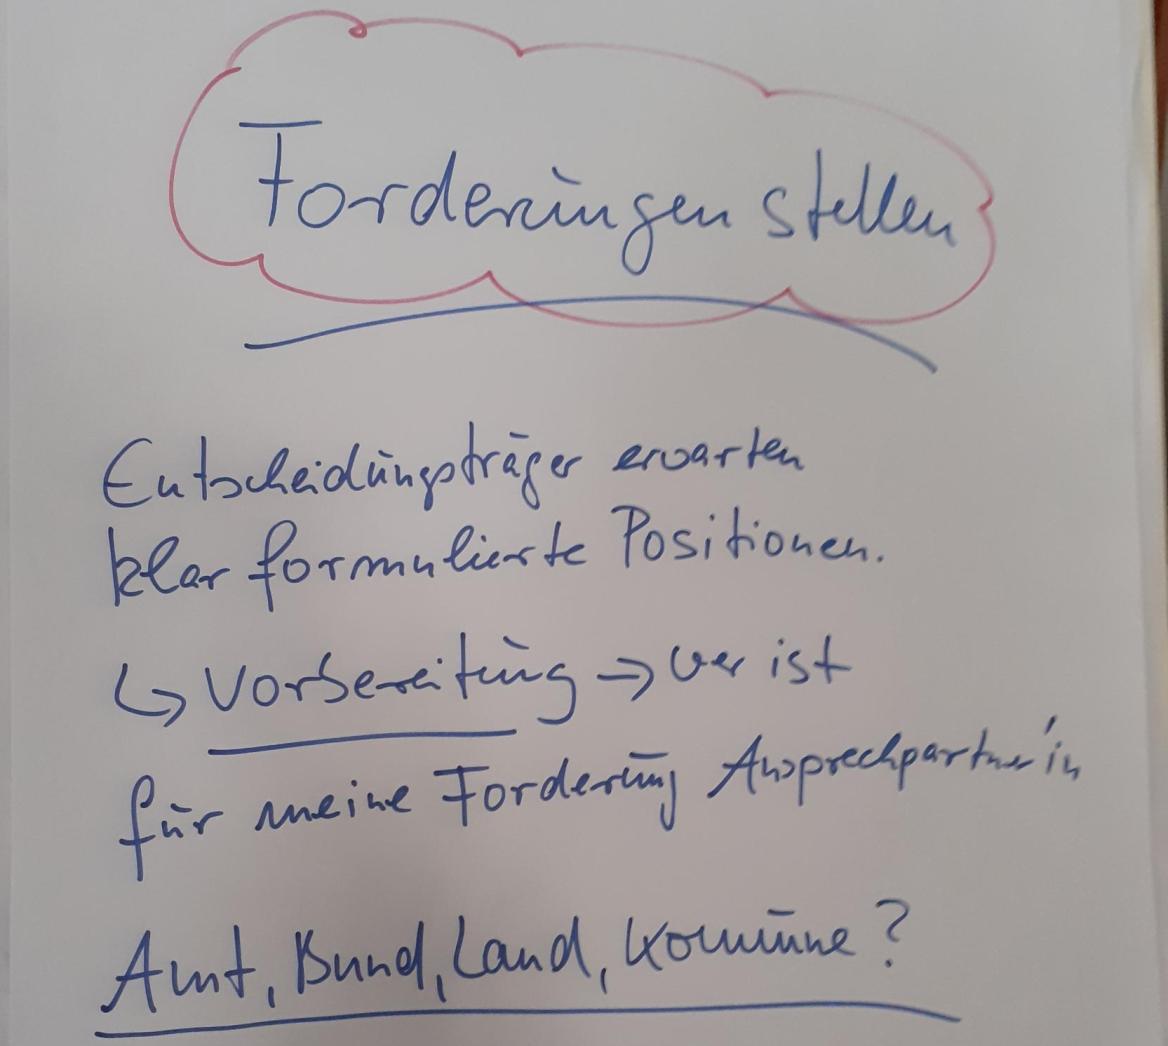 Forderungen stellen
Entscheidungsträger erwarten
klar formulierte Positionen.
↳ Vorbereitung → wer ist
für meine Forderung Ansprechpartner'in
Amt, Bund, Land, Kommune?